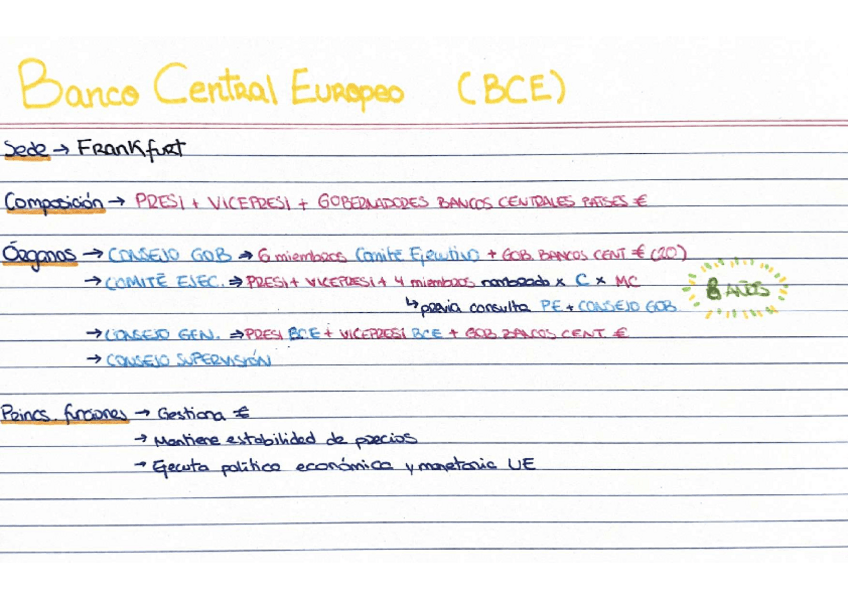 Banco Central Europeo (BCE)
Sede → Frankfurt
Composición → PRESI + VICEPRESI + GOBERNADORES BANCOS CENTRALES PAÍSES €
Órganos → CONSEJO GOB → 6 miembros Comité Ejecutivo + GOB. BANCOS CENT € (20)
→ COMITÉ EJEC. ⇒ PRESI + VICEPRESI + 4 miembros nombrado x C x MC
8 AÑOS
↳ previa consulta PE + CONSEJO GOB
→ CONSEJO GEN. ⇒ PRESI BCE + VICEPRESI BCE + GOB BANCOS CENT. €
→ CONSEJO SUPERVISIÓN
Princs. funciones → Gestiona €
→ Mantiene estabilidad de precios
→ Ejecuta política económica y monetaria UE